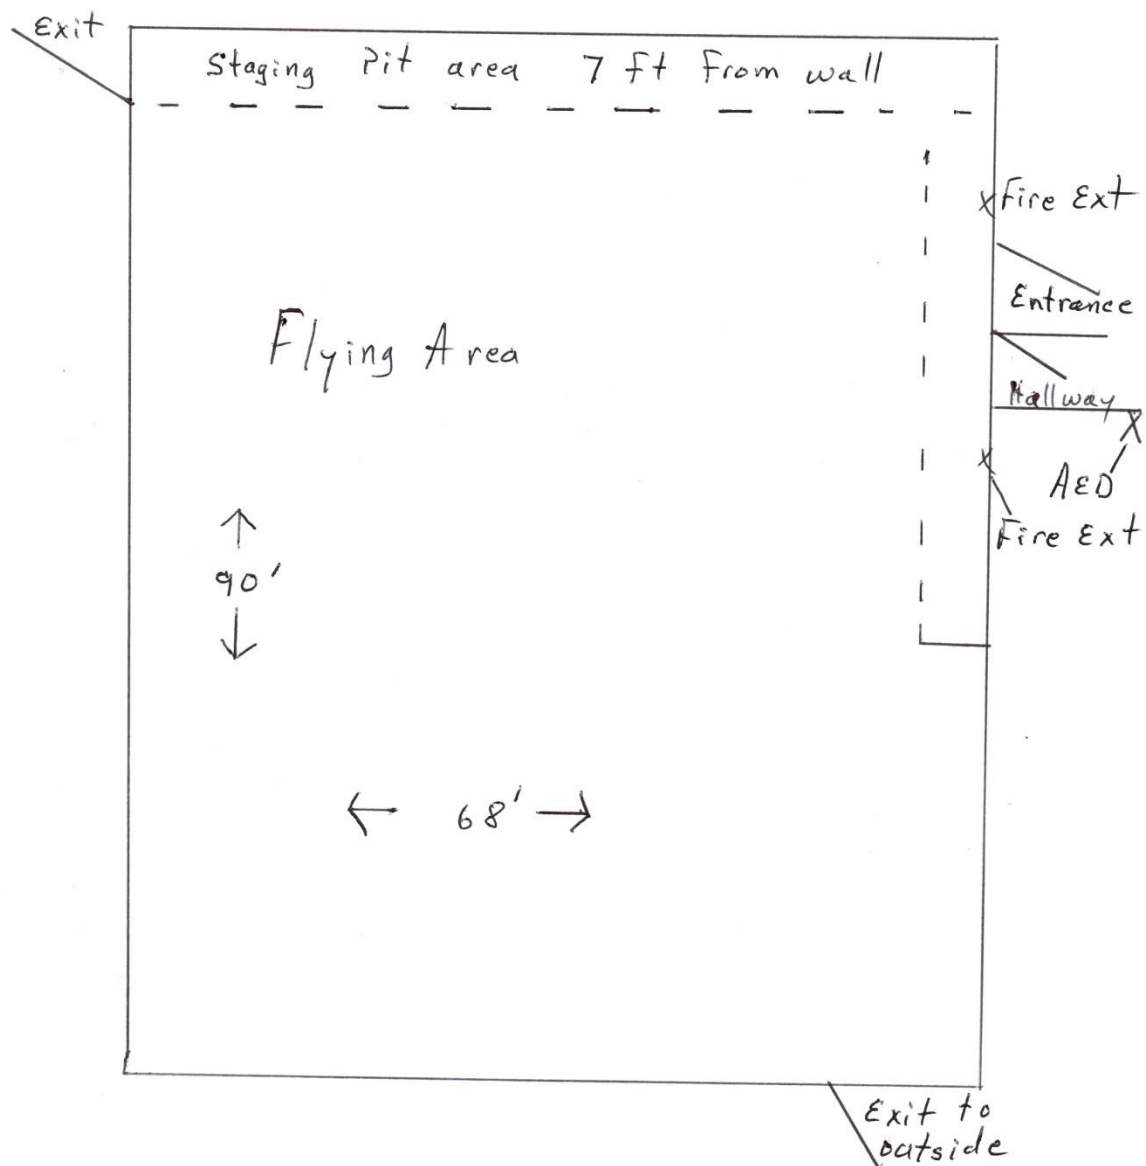 Exit
Staging Pit area 7 ft From wall
X Fire Ext
Entrance
Hallway
X
AED
X
Fire Ext
Flying Area
90'
68'
Exit to
outside